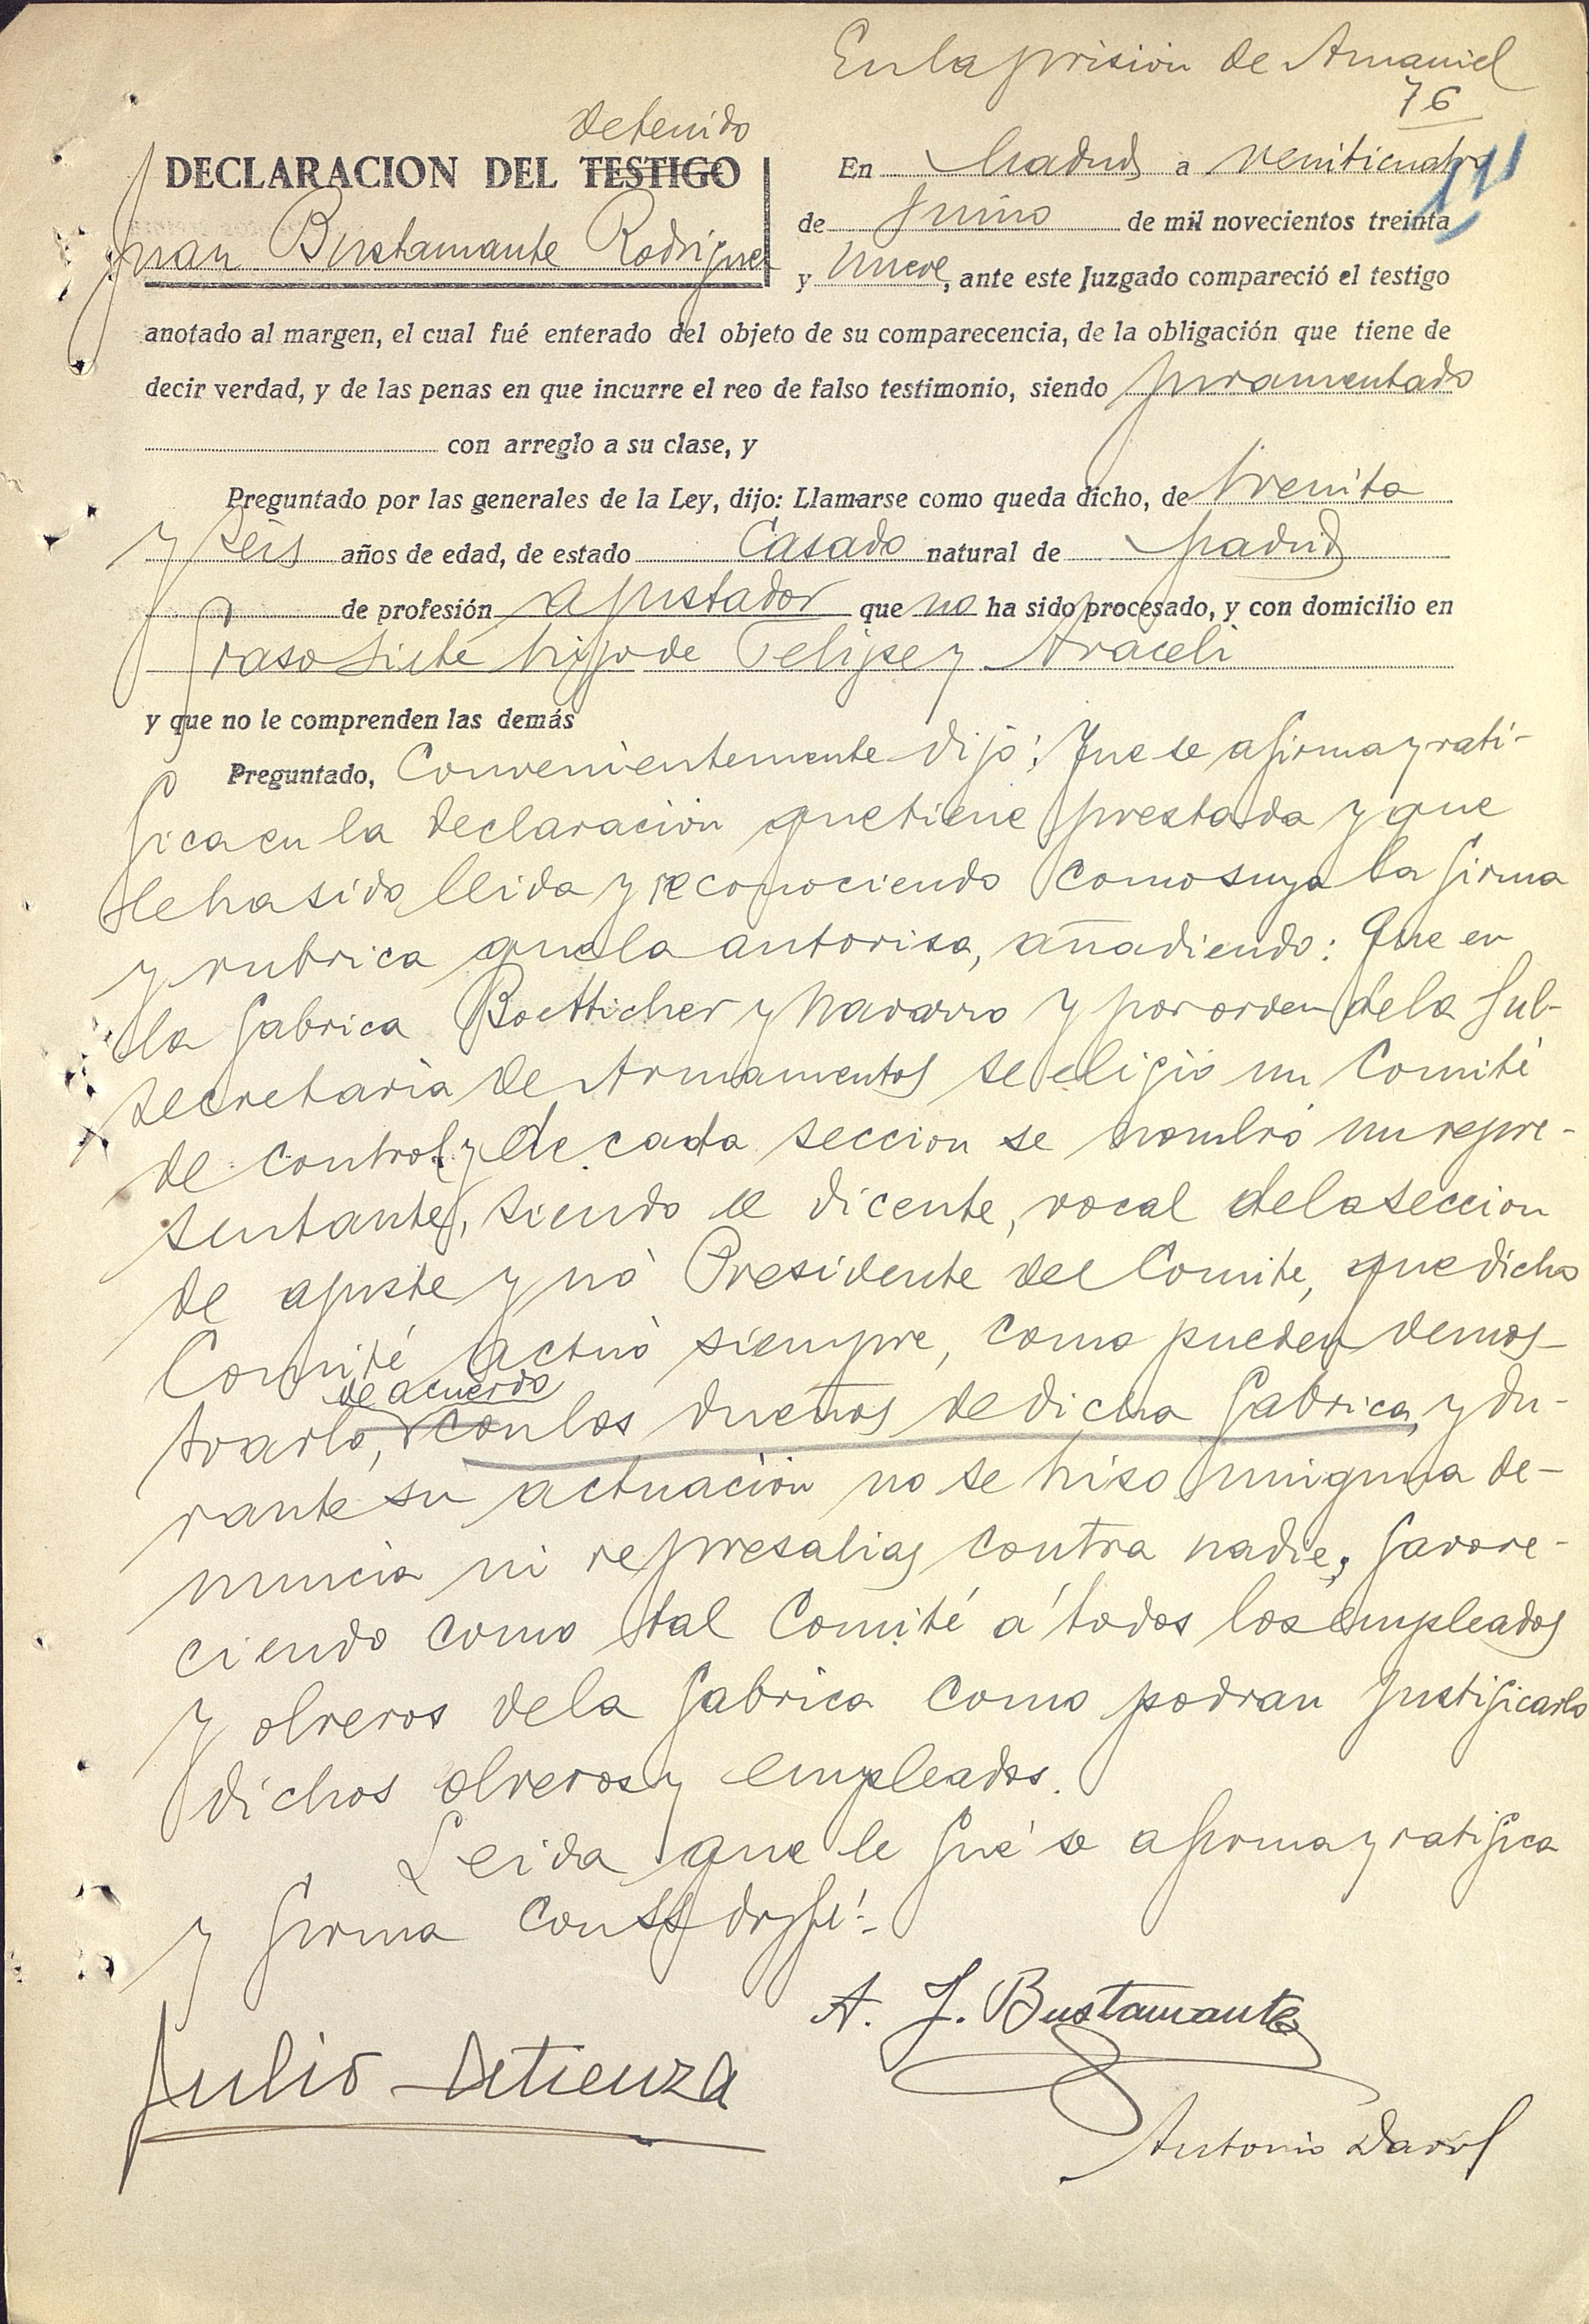 En la prision de Amaniel
76
detenido
DECLARACION DEL TESTIGO
Juan Bustamante Rodriguez
En Madrid a veniticuatro
de Junio de mil novecientos treinta
y nueve, ante este Juzgado compareció el testigo
anotado al margen, el cual fué enterado del objeto de su comparecencia, de la obligación que tiene de
decir verdad, y de las penas en que incurre el reo de falso testimonio, siendo juramentado
con arreglo a su clase, y
Preguntado por las generales de la Ley, dijo: Llamarse como queda dicho, de treinta
y seis años de edad, de estado Casado natural de Madrid
de profesión ajustador que no ha sido procesado, y con domicilio en
siete hijo de Felipe y Araceli
y que no le comprenden las demás
Preguntado, Convenientemente dijo: Que se afirma y rati-
fica en la declaración que tiene prestada y que
le ha sido leida y reconociendo como suya la firma
y rubrica que la autorisa, añadiendo: Que en
la fabrica Boetticher y Navarro y por orden de la Sub-
secretaria de Armamentos se eligió un Comité
de control y de cada seccion se nombró un repre-
sentante, siendo el dicente, vocal de la seccion
de ajuste y nó Presidente del Comite, que dicho
Comité actuó siempre, como pueden demos-
de acuerdo
trarlo, con los dueños de dicha fabrica, y du-
rante su actuación no se hiso ninguna de-
nuncia ni represalias contra nadie, favore-
ciendo como tal Comité á todos los empleados
y obreros de la fabrica como podran justificarlo
dichos obreros y empleados.
Leida que le fué se afirma y ratifica
y firma con SS doy fé.-
A. J. Bustamante
Julio Atienza
Antonio